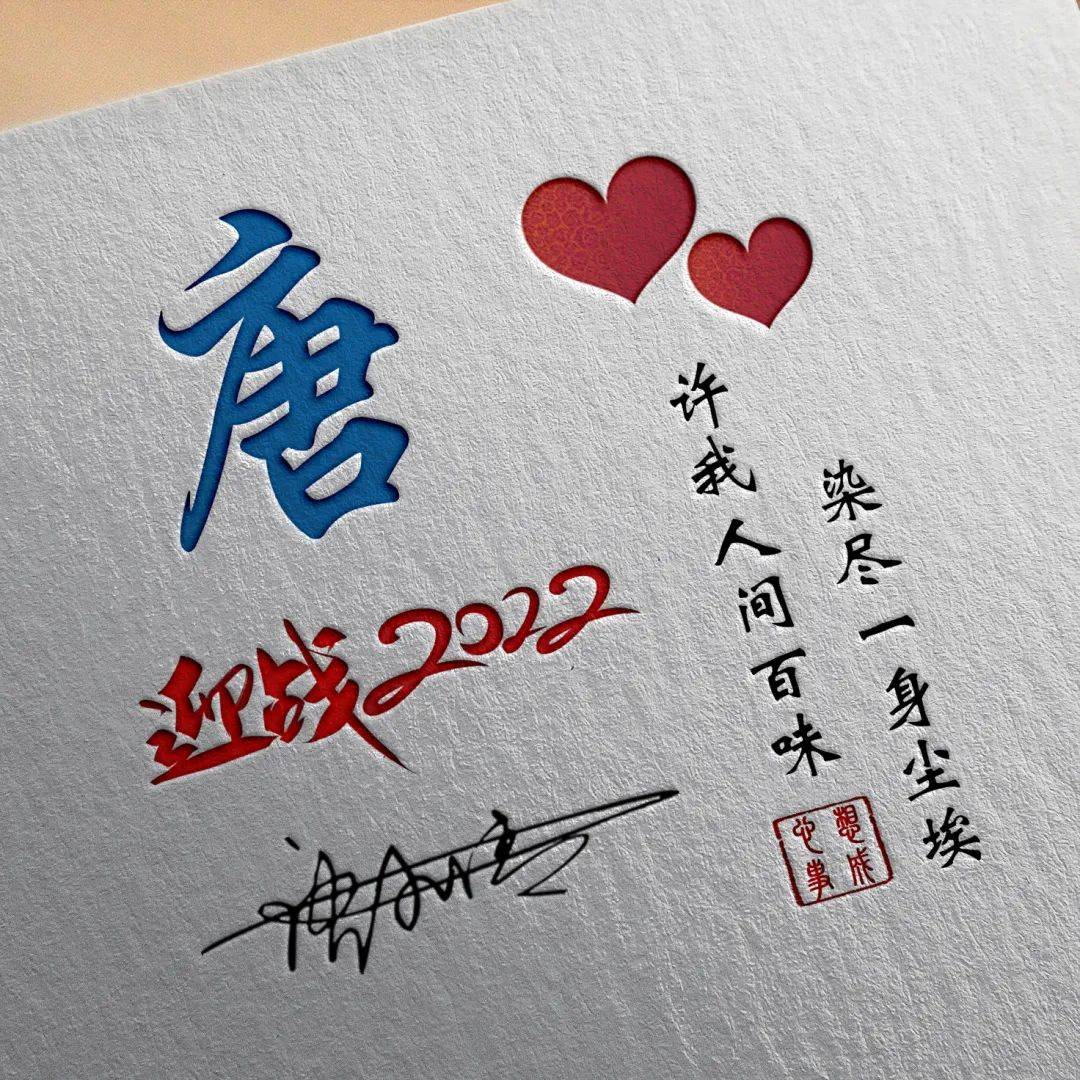 唐
迎战2022
染尽一身尘埃
许我人间百味
心想事成